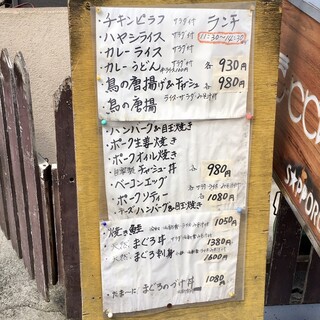 ・チキンピラフ サラダ付 ランチ
・ハヤシライス サラダ付 11:30〜14:30
・カレーライス サラダ付
・カレーうどん 各 930円
・鳥の唐揚げ&チャーシュー 各 980円
・鳥の唐揚 ライス・サラダ・みそ汁付
・ハンバーグ&目玉焼き
・ポーク生姜焼き
・ポークオイル焼き
・自家製チャーシュー丼 980円
・ベーコンエッグ
・ポークソティー 各 1080円
・チーズハンバーグ&目玉焼き
・焼き鮭 1050円
まぐろ丼 1380円
まぐろ刺身 1600円
まぐろのづけ丼 1080円
SAPPORO